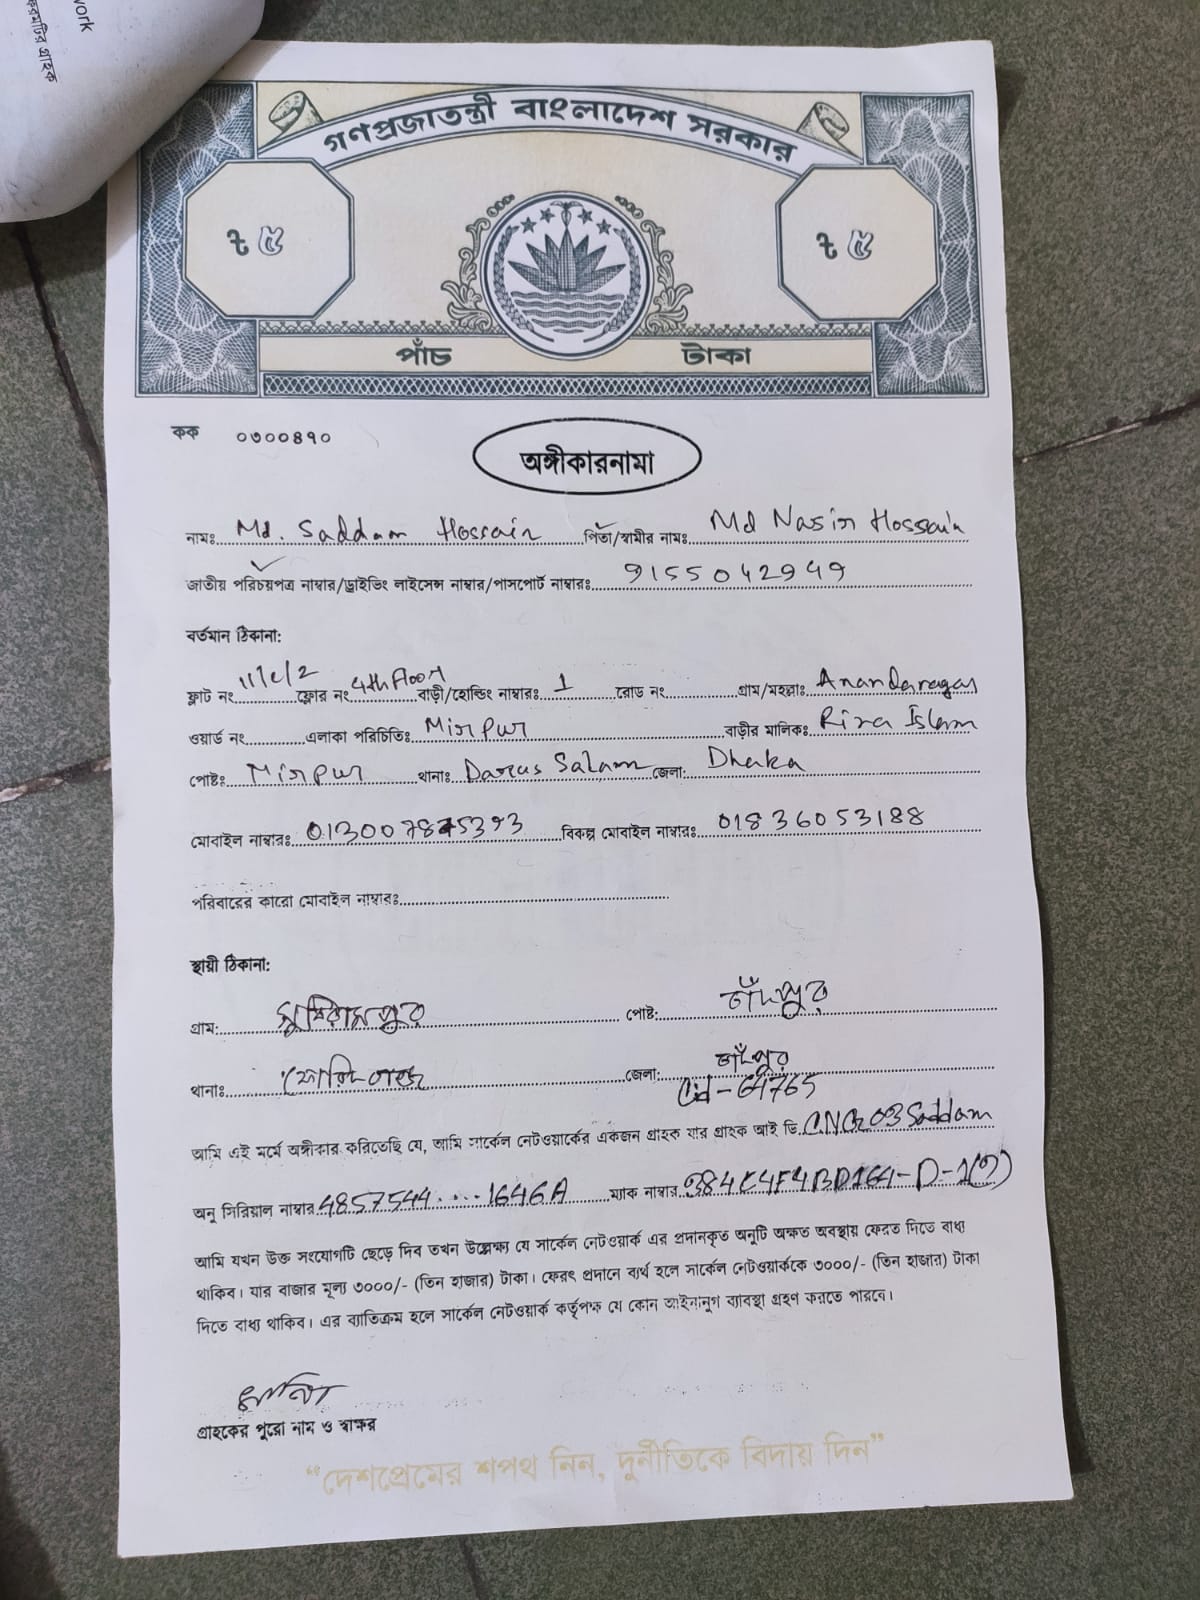 work
করমটির গ্রাহক
গণপ্রজাতন্ত্রী বাংলাদেশ সরকার
৳ ৫ ৳ ৫
পাঁচ টাকা
কক ০৩০০৪১০
অঙ্গীকারনামা
নামঃ Md. Saddam Hossain পিতা/স্বামীর নামঃ Md Nasir Hossain
জাতীয় পরিচয়পত্র নাম্বার/ড্রাইভিং লাইসেন্স নাম্বার/পাসপোর্ট নাম্বারঃ 9155042949
বর্তমান ঠিকানা:
ফ্লাট নং 11/c/2 ফ্লোর নং 4th floor বাড়ী/হোল্ডিং নাম্বারঃ 1 রোড নং গ্রাম/মহল্লাঃ Anandanagar
ওয়ার্ড নং এলাকা পরিচিতিঃ Mirpur বাড়ীর মালিকঃ Rina Islam
পোষ্টঃ Mirpur থানাঃ Darus Salam জেলা: Dhaka
মোবাইল নাম্বারঃ বিকল্প মোবাইল নাম্বারঃ 01836053188
পরিবারের কারো মোবাইল নাম্বারঃ
স্থায়ী ঠিকানা:
গ্রাম: পোষ্ট: চাঁদপুর
থানাঃ জেলা: চাঁদপুর
Cid-64765
আমি এই মর্মে অঙ্গীকার করিতেছি যে, আমি সার্কেল নেটওয়ার্কের একজন গ্রাহক যার গ্রাহক আই ডি CNG03Saddam
অনু সিরিয়াল নাম্বার 4857544....1646A ম্যাক নাম্বার
আমি যখন উক্ত সংযোগটি ছেড়ে দিব তখন উল্লেখ্য যে সার্কেল নেটওয়ার্ক এর প্রদানকৃত অনুটি অক্ষত অবস্থায় ফেরত দিতে বাধ্য
থাকিব। যার বাজার মূল্য ৩০০০/- (তিন হাজার) টাকা। ফেরৎ প্রদানে ব্যর্থ হলে সার্কেল নেটওয়ার্ককে ৩০০০/- (তিন হাজার) টাকা
দিতে বাধ্য থাকিব। এর ব্যাতিক্রম হলে সার্কেল নেটওয়ার্ক কর্তৃপক্ষ যে কোন আইনানুগ ব্যাবস্থা গ্রহণ করতে পারবে।
গ্রাহকের পুরো নাম ও স্বাক্ষর
“দেশপ্রেমের শপথ নিন, দুর্নীতিকে বিদায় দিন”